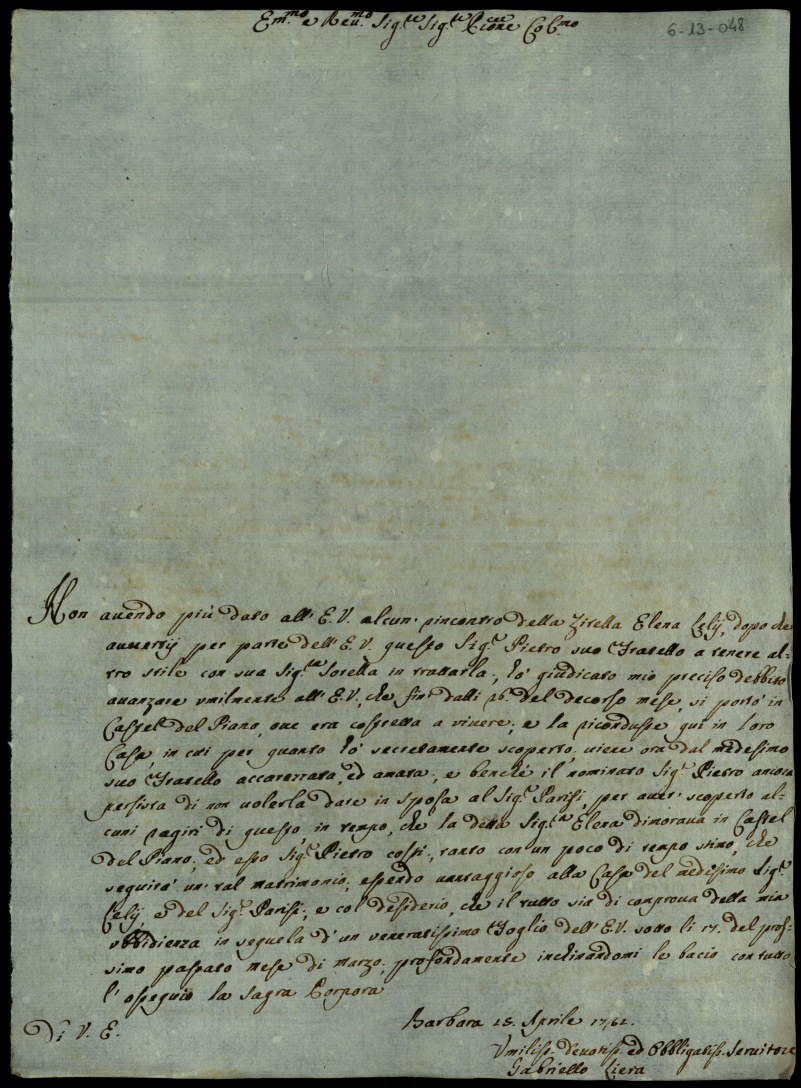 Em.mo e Reu.mo Sig.re Sig.re P.rone Col.mo
6-13-048
Non auendo più dato all' E.V. alcun' rincontro della Zitella Elena Celij, dopo che
auuertij per parte dell' E.V. questo Sig.r Pietro suo Fratello a tenere al=
tro stile con sua Sig.ra Sorella in trattarla; hò giudicato mio preciso debbito
auanzare vmilmente all' E.V., che fin' dalli 26. del decorso mese, si portò in
Castel del Piano, oue era costretta a viuere; e la ricondusse qui in loro
Casa, in cui per quanto hò secretamente scoperto, viene ora dal medesimo
suo Fratello accarezzata, ed amata; e benche il nominato Sig.r Pietro ancora
persista di non uolerla dare in sposa al Sig.r Parisi, per auer' scoperto al=
cuni ragiri di questo, in tempo, che la detta Sig.ra Elena dimoraua in Castel
del Piano; ed esso Sig.r Pietro colsi, tanto con un poco di tempo stimo, che
seguirà un' tal matrimonio, essendo uantaggioso alla Casa del medesimo Sig.r
Celij, e del Sig.r Parisi; e col desiderio, che il tutto sia di comproua della mia
vbbidienza in sequela d'un veneratissimo Foglio dell' E.V. sotto li 17. del pros=
simo passato mese di Marzo; profondamente inclinandomi le bacio con tutto
l'ossequio la Sagra Porpora
Di V. E.
Barbara 25. Aprile 1762.
Vmiliss. Deuotiss. ed Obbligatiss. Seruitore
Gabriello Liera